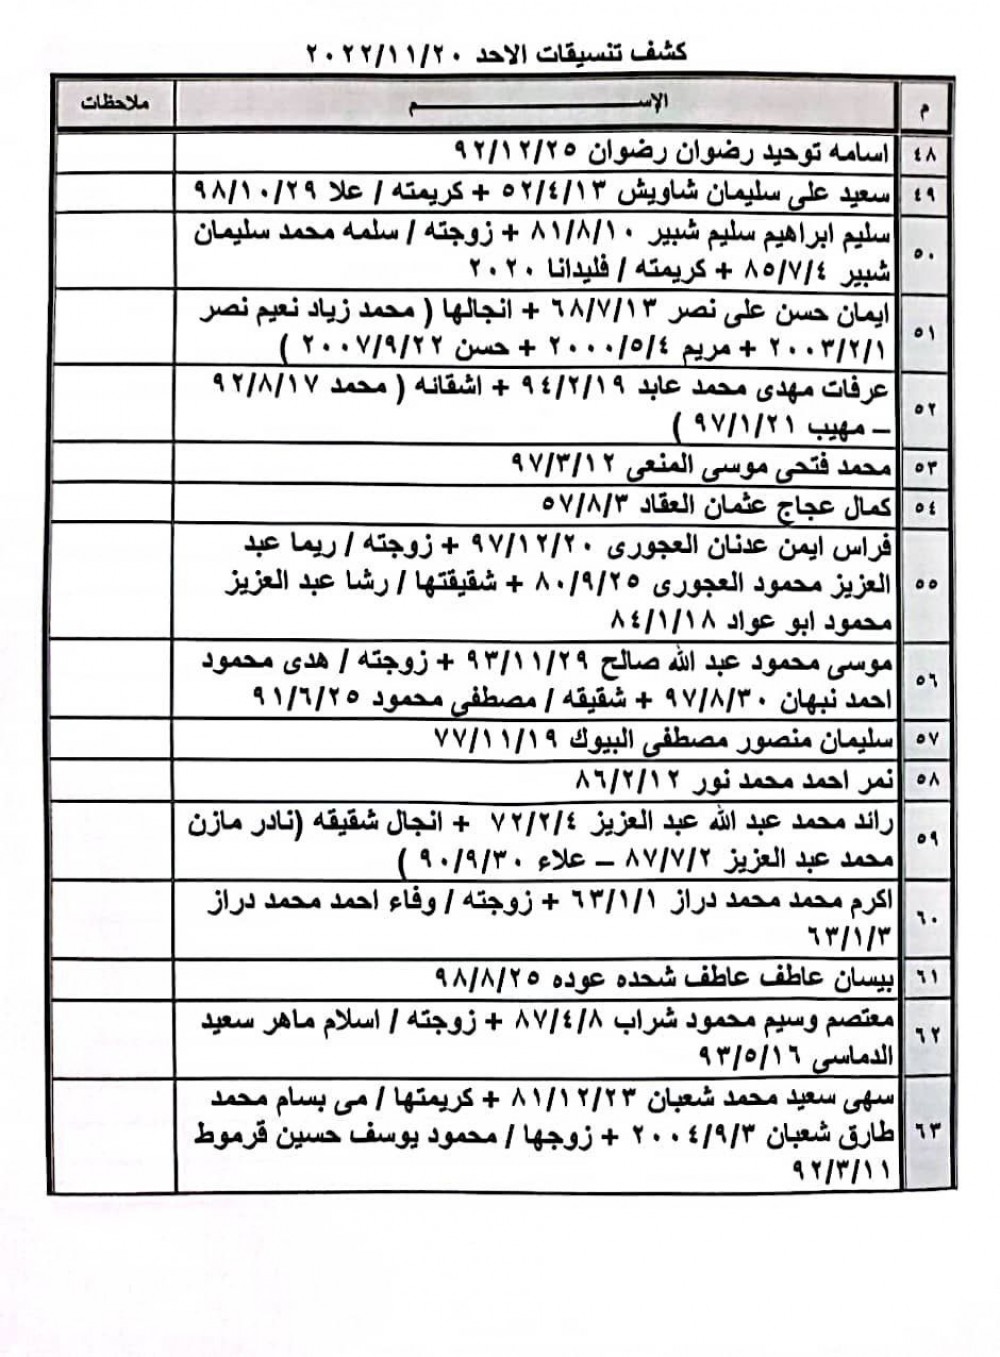 كشف تنسيقات الاحد ٢٠٢٢/١١/٢٠
م الإســـــــــــــــــــم ملاحظات
٤٨ اسامه توحيد رضوان رضوان ٩٢/١٢/٢٥
٤٩ سعيد على سليمان شاويش ٥٢/٤/١٣ + كريمته / علا ٩٨/١٠/٢٩
٥٠ سليم ابراهيم سليم شبير ٨١/٨/١٠ + زوجته / سلمه محمد سليمان
شبير ٨٥/٧/٤ + كريمته / فليدانا ٢٠٢٠
٥١ ايمان حسن على نصر ٦٨/٧/١٣ + انجالها ( محمد زياد نعيم نصر
٢٠٠٣/٢/١ + مريم ٢٠٠٠/٥/٤ + حسن ٢٠٠٧/٩/٢٢ )
٥٢ عرفات مهدى محمد عابد ٩٤/٢/١٩ + اشقائه ( محمد ٩٢/٨/١٧
– مهيب ٩٧/١/٢١ )
٥٣ محمد فتحى موسى المنعى ٩٧/٣/١٢
٥٤ كمال عجاج عثمان العقاد ٥٧/٨/٣
٥٥ فراس ايمن عدنان العجورى ٩٧/١٢/٢٠ + زوجته / ريما عبد
العزيز محمود العجورى ٨٠/٩/٢٥ + شقيقتها / رشا عبد العزيز
محمود ابو عواد ٨٤/١/١٨
٥٦ موسى محمود عبد الله صالح ٩٣/١١/٢٩ + زوجته / هدى محمود
احمد نبهان ٩٧/٨/٣٠ + شقيقه / مصطفى محمود ٩١/٦/٢٥
٥٧ سليمان منصور مصطفى البيوك ٧٧/١١/١٩
٥٨ نمر احمد محمد نور ٨٦/٢/١٢
٥٩ رائد محمد عبد الله عبد العزيز ٧٢/٢/٤ + انجال شقيقه (نادر مازن
محمد عبد العزيز ٨٧/٧/٢ – علاء ٩٠/٩/٣٠ )
٦٠ اكرم محمد محمد دراز ٦٣/١/١ + زوجته / وفاء احمد محمد دراز
٦٣/١/٣
٦١ بيسان عاطف عاطف شحده عوده ٩٨/٨/٢٥
٦٢ معتصم وسيم محمود شراب ٨٧/٤/٨ + زوجته / اسلام ماهر سعيد
الدماسى ٩٣/٥/١٦
٦٣ سهى سعيد محمد شعبان ٨١/١٢/٢٣ + كريمتها / مى بسام محمد
طارق شعبان ٢٠٠٤/٩/٣ + زوجها / محمود يوسف حسين قرموط
٩٢/٣/١١